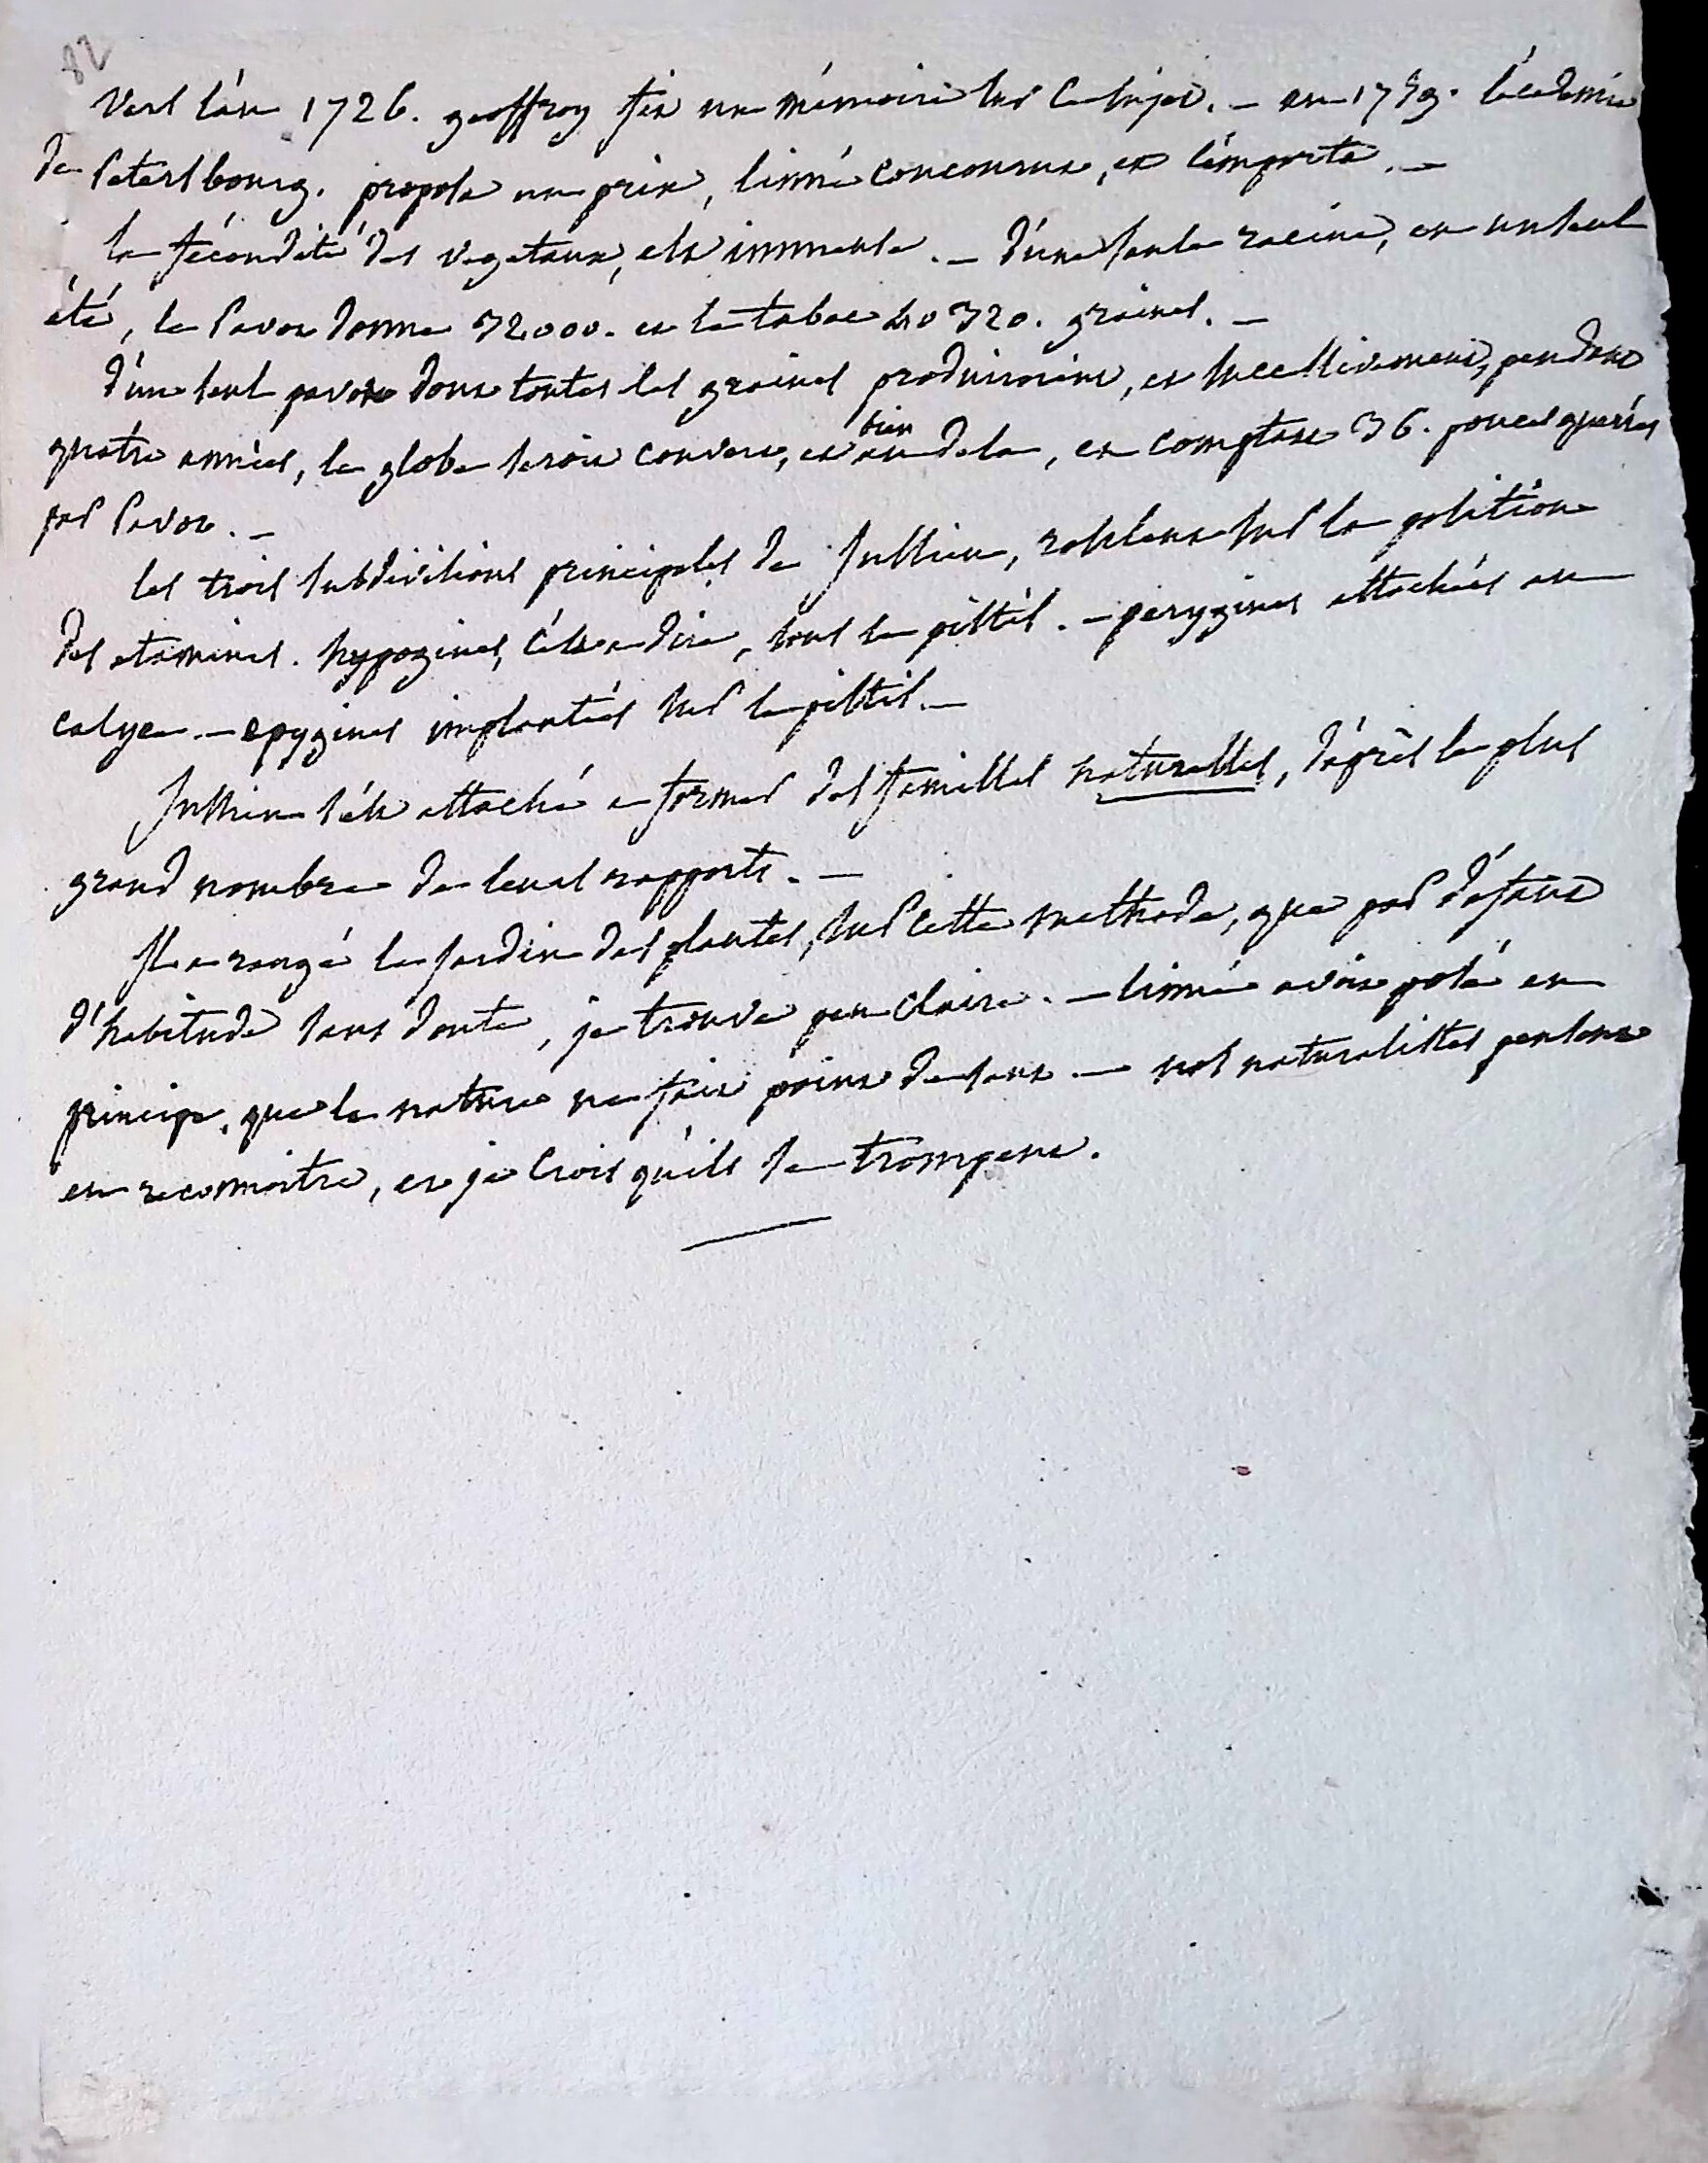 82
Vers l'an 1726. geoffroy fit un mémoire sur ce sujet. — en 1759. l'académie
de Petersbourg. propose un prix, linné concourut, et l'emporta. —
la fécondité des vegetaux, est immense. — d'une seule racine, en un seul
été, le Pavot donne 32000. et le tabac 40320. graines. —
d'un seul pavot dont toutes les graines produiroient, et successivement, pendant
quatre années, le globe seroit couvert, et bien au dela, en comptant 36. pouces quarrés
par Pavot. —
les trois subdivisions principales de Jussieu, roulent sur la position
des etamines. hypogines, c'est a dire, sous le pistil. — perygines attachées au
calyce. — epygines implantées sur le pistil. —
Jussieu s'est attaché a former des familles naturelles, d'après le plus
grand nombre de leurs rapports. —
Il a rangé le Jardin des plantes, sur cette methode, que par défaut
d'habitude sans doute, je trouve peu claire. — linné avoit posé en
principe, que la nature ne fait point de saut — nos naturalistes pensent
en reconnoitre, et je crois qu'ils se trompent.